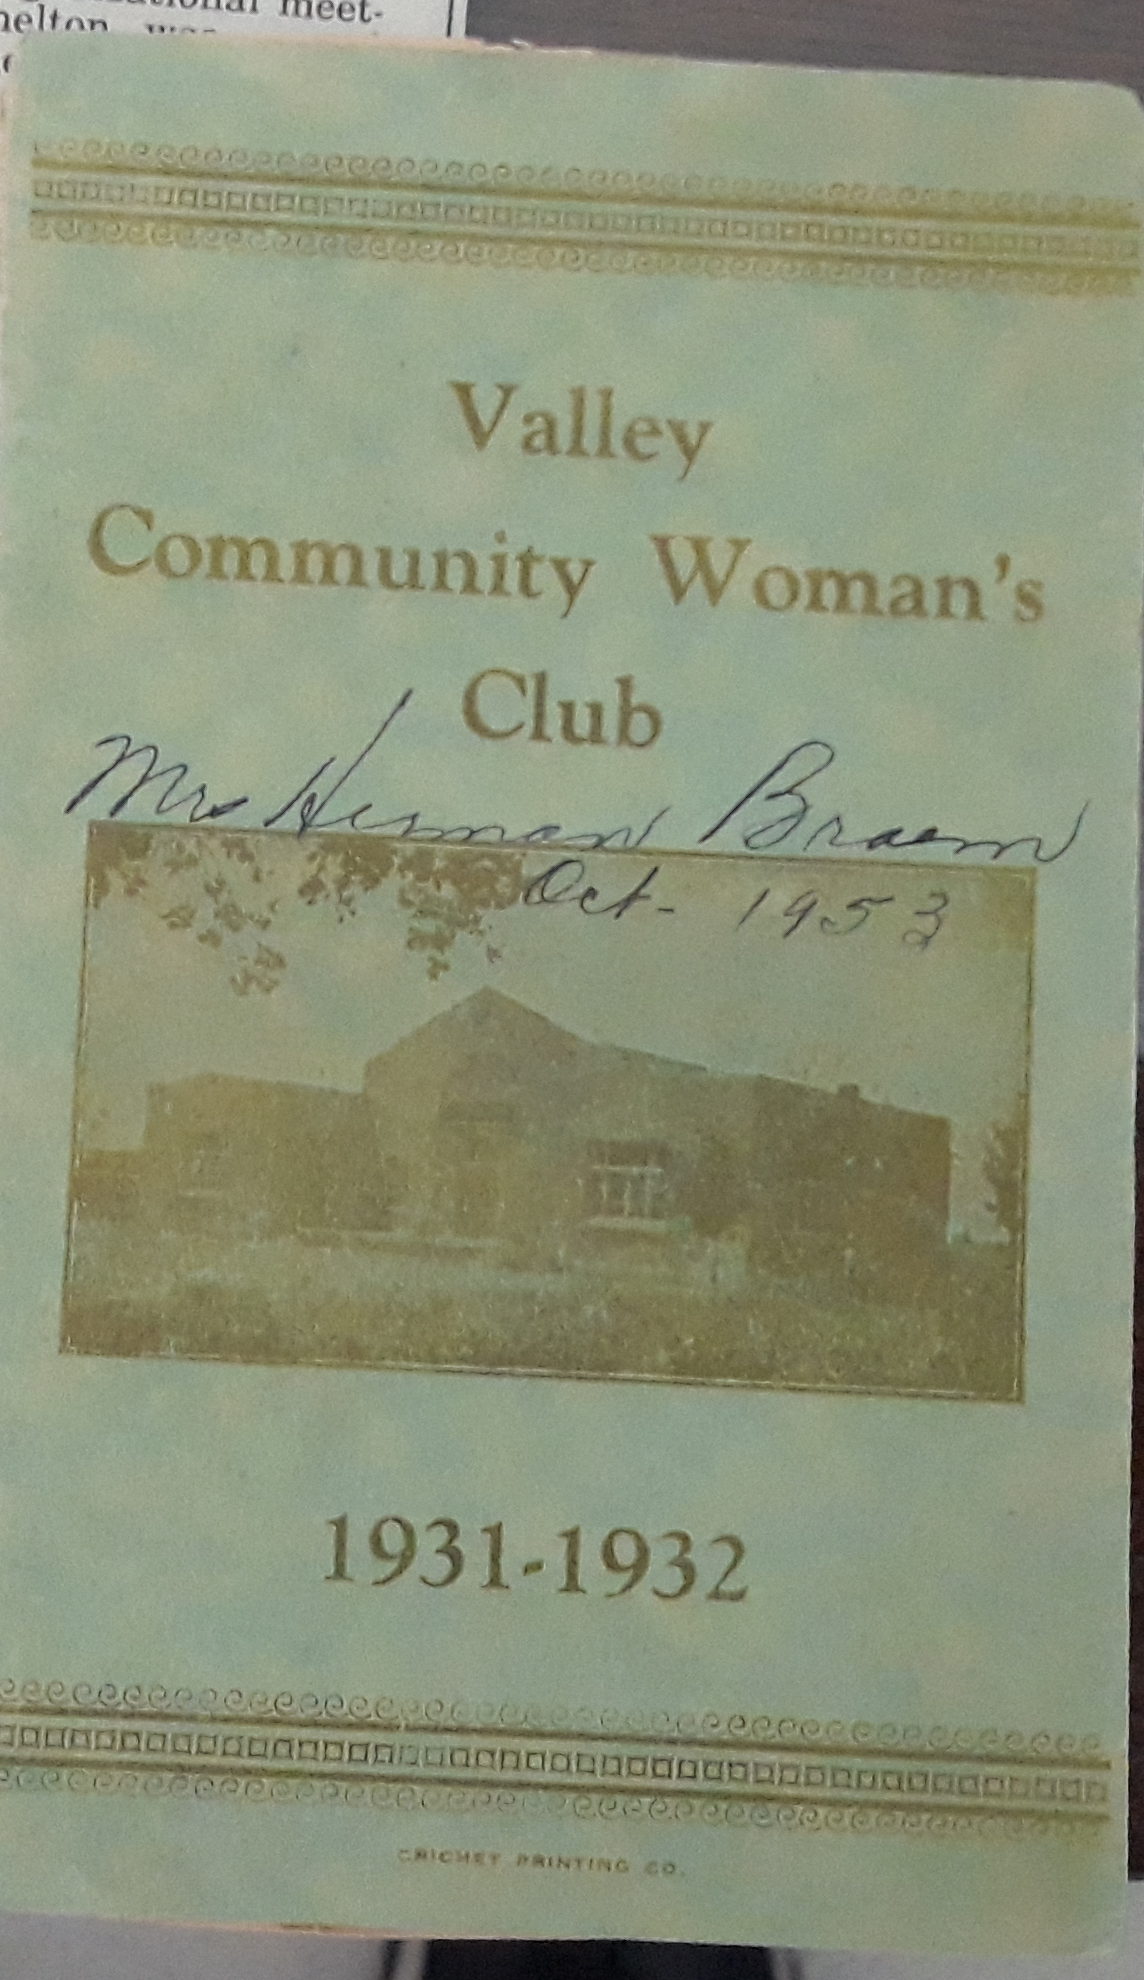 meet-
Valley
Community Woman's
Club
Mrs Herman Braem
Oct - 1953
1931-1932
CRICKET PRINTING CO.